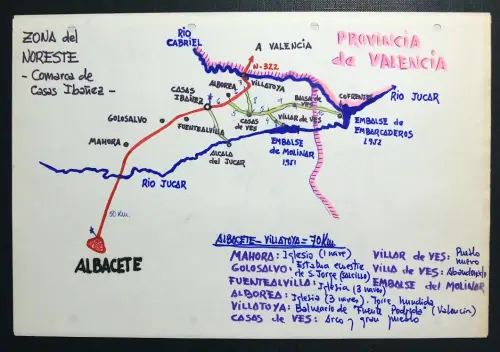 ZONA del
NORESTE
- Comarca de
Casas Ibáñez -
RIO
CABRIEL
A VALENCIA
N-322
PROVINCIA
de VALENCIA
VILLATOYA
ALBOREA
CASAS
IBAÑEZ
BALSA DE
VES
COFRENTES
RIO JUCAR
GOLOSALVO
FUENTEALVILLA
CASAS
de VES
VILLAR DE VES
EMBALSE de
EMBARCADEROS
1952
MAHORA
ALCALA
del JUCAR
EMBALSE
de MOLINAR
1951
RIO JUCAR
50 Km.
ALBACETE
ALBACETE - VILLATOYA = 70 Km
MAHORA: Iglesia (1 nave)
GOLOSALVO: Estatua ecuestre
de S. Jorge (Sencillo)
FUENTEALVILLA: Iglesia (3 naves)
ALBOREA: Iglesia (3 naves). Torre hundida
VILLATOYA: Balneario de "Fuente Podrida" (Valencia)
CASAS DE VES: Arco y gran pueblo
VILLAR DE VES: Pueblo
nuevo
VILLA DE VES: Abandonado
EMBALSE del MOLINAR